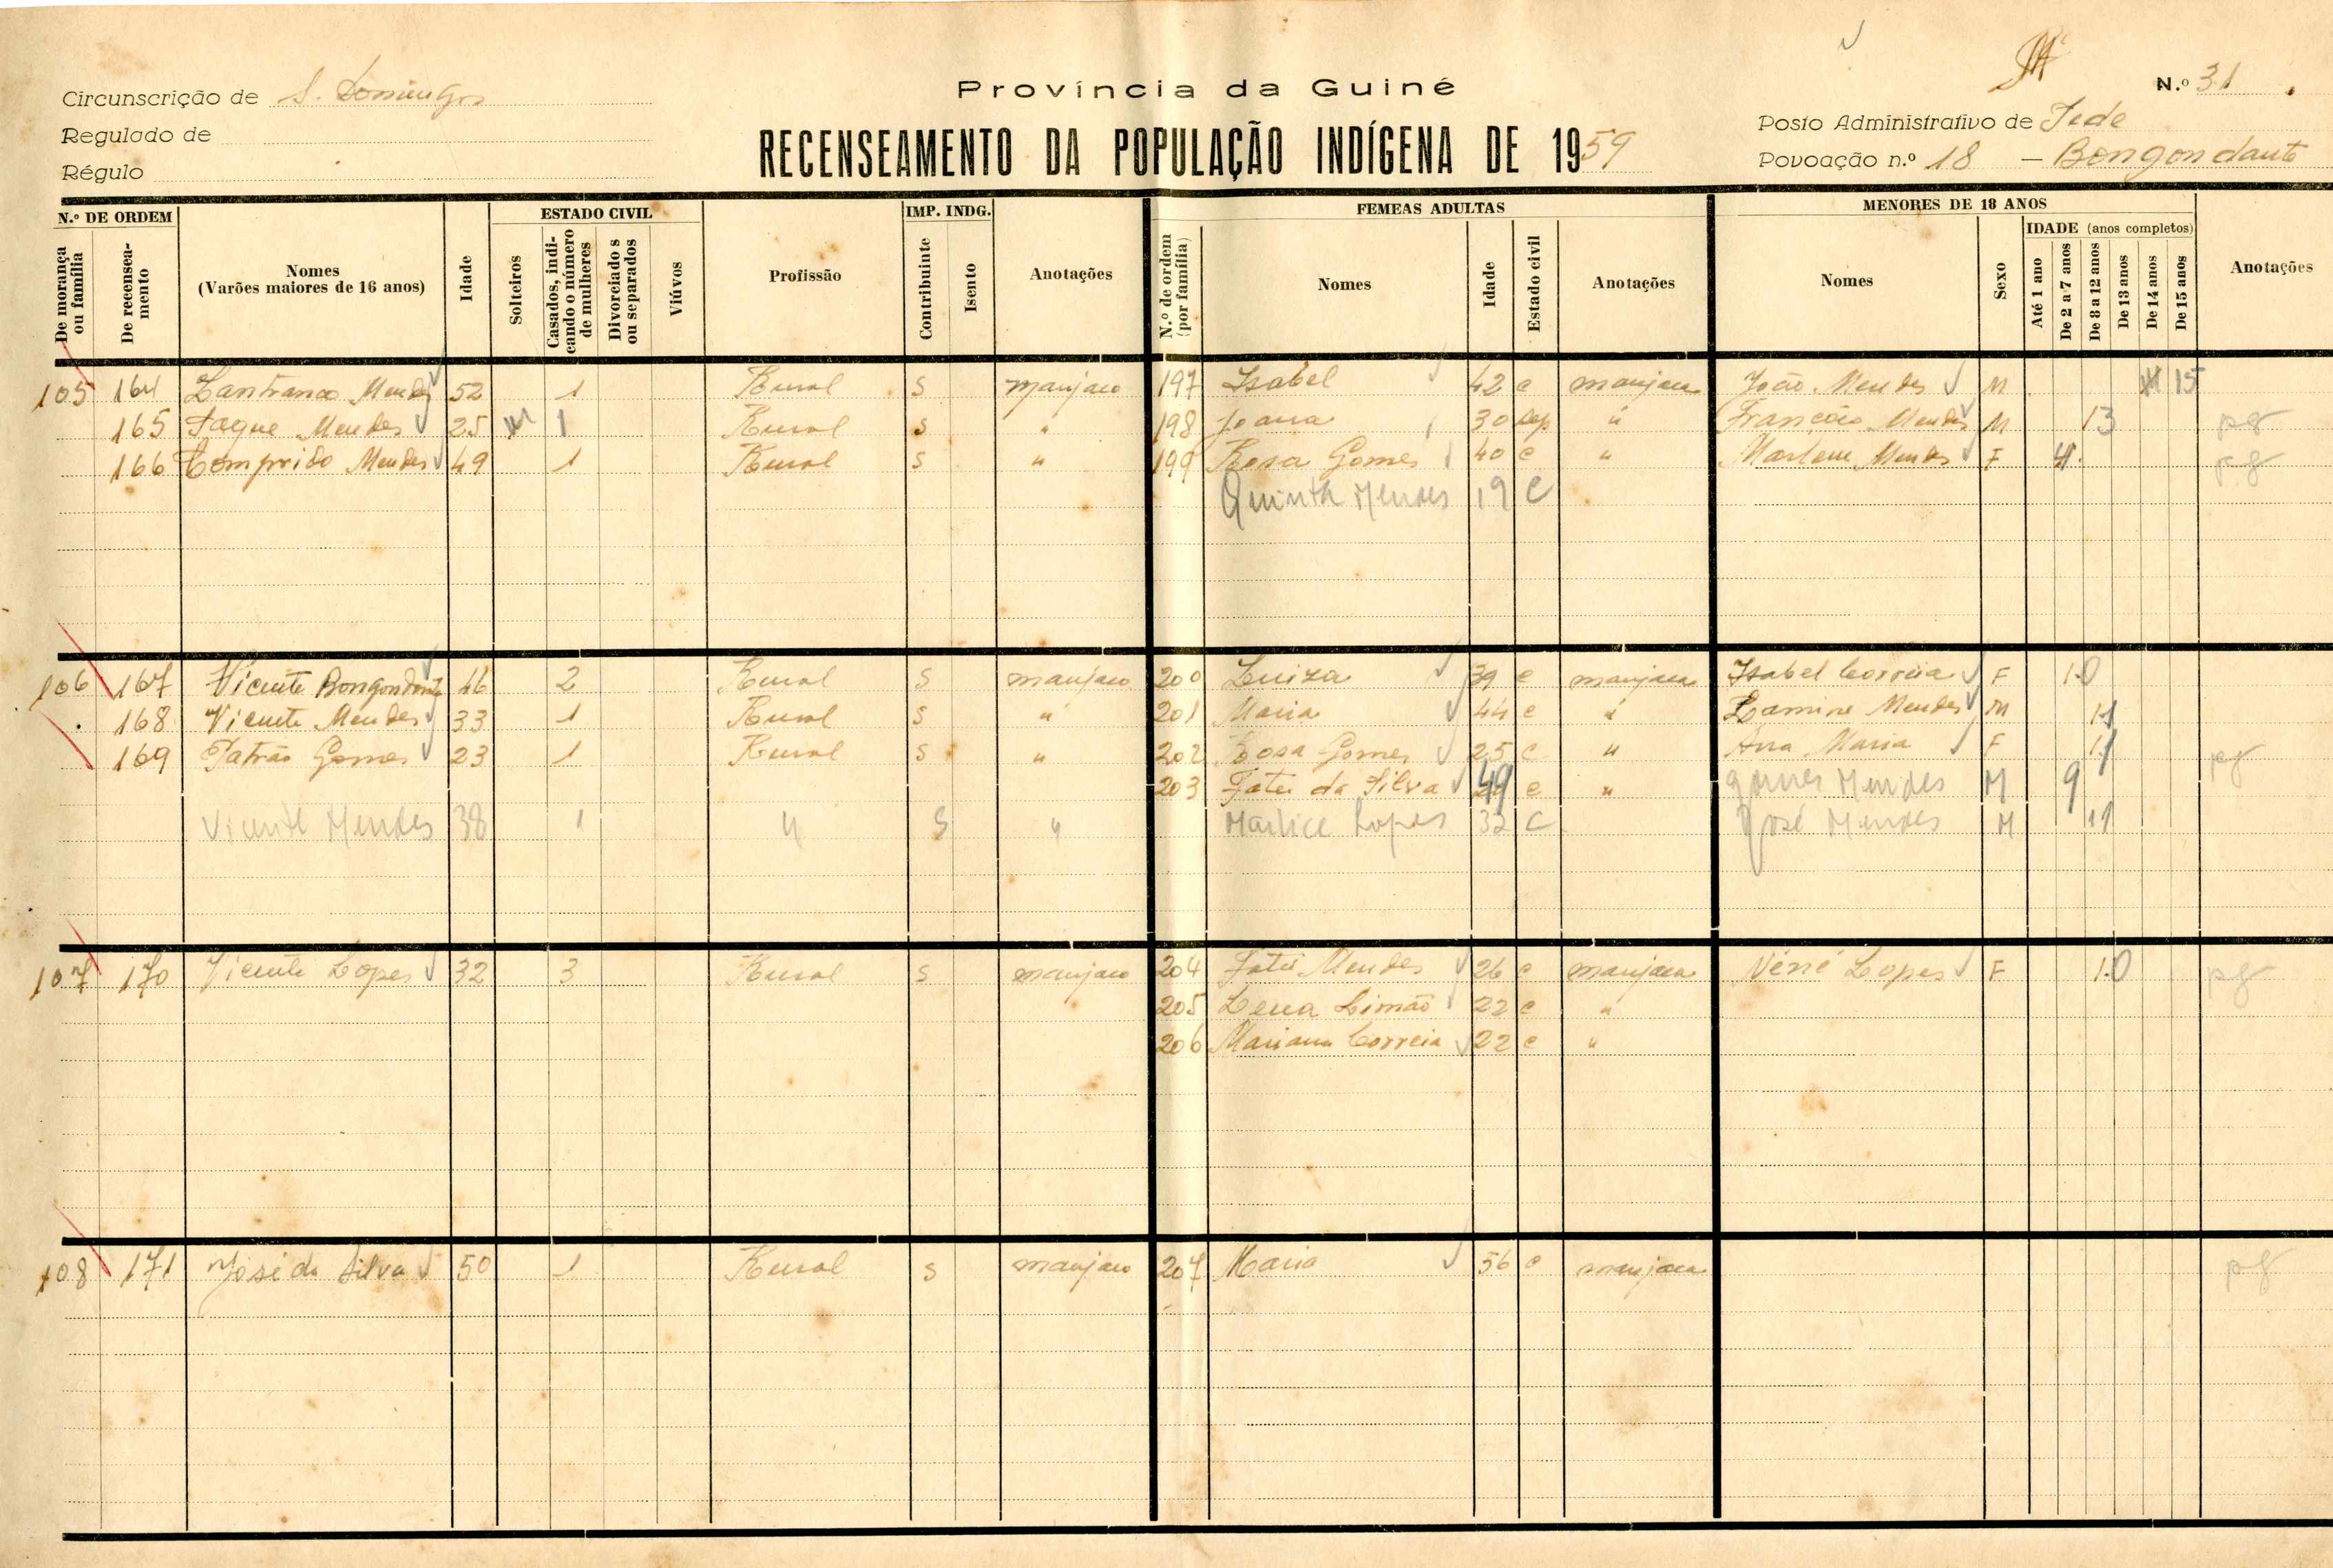 Província da Guiné
N.º 31
Circunscrição de S. Domingos
Regulado de
Régulo
RECENSEAMENTO DA POPULAÇÃO INDÍGENA DE 1959
Posto Administrativo de Jede
Povoação n.º 18 — Bongondauto
N.º DE ORDEM
De morança ou família
De recenseamento
Nomes
(Varões maiores de 16 anos)
Idade
ESTADO CIVIL
Solteiros
Casados, indicando o número de mulheres
Divorciados ou separados
Viúvos
Profissão
IMP. INDG.
Contribuinte
Isento
Anotações
FEMEAS ADULTAS
N.º de ordem (por família)
Nomes
Idade
Estado civil
Anotações
MENORES DE 18 ANOS
Nomes
Sexo
IDADE (anos completos)
Até 1 ano
De 2 a 7 anos
De 8 a 12 anos
De 13 anos
De 14 anos
De 15 anos
Anotações
105 164 Lanfranco Mendes 52 1 Rural S manjaco 197 Isabel 42 c manjaca João Mendes M 15
165 Jaque Mendes 25 1 Rural S " 198 Joana 30 sep " Mendes M 13 pg
166 Comprido Mendes 49 1 Rural S " 199 Rosa Gomes 40 c " Marlene Mendes F 4 pg
Mendes 19 C
106 167 Vicente 46 2 Rural S manjaco 200 Luiza 39 c manjaca Isabel Correia F 10
168 Vicente Mendes 33 1 Rural S " 201 Maria 44 c " Lamine Mendes M 11
169 Patrão Gomes 23 1 Rural S " 202 Rosa Gomes 25 c " Ana Maria F 11 pg
203 Fatu da Silva 49 c " Mendes M 9
Vicente Mendes 38 1 " S " Lopes 32 C José Mendes M 11
107 170 Vicente Lopes 32 3 Rural S manjaco 204 Fatu Mendes 26 c manjaca Néné Lopes F 10 pg
205 Lena Limão 22 c "
206 Mariana Correia 22 c "
108 171 José da Silva 50 1 Rural S manjaco 207 Maria 56 c manjaca pg